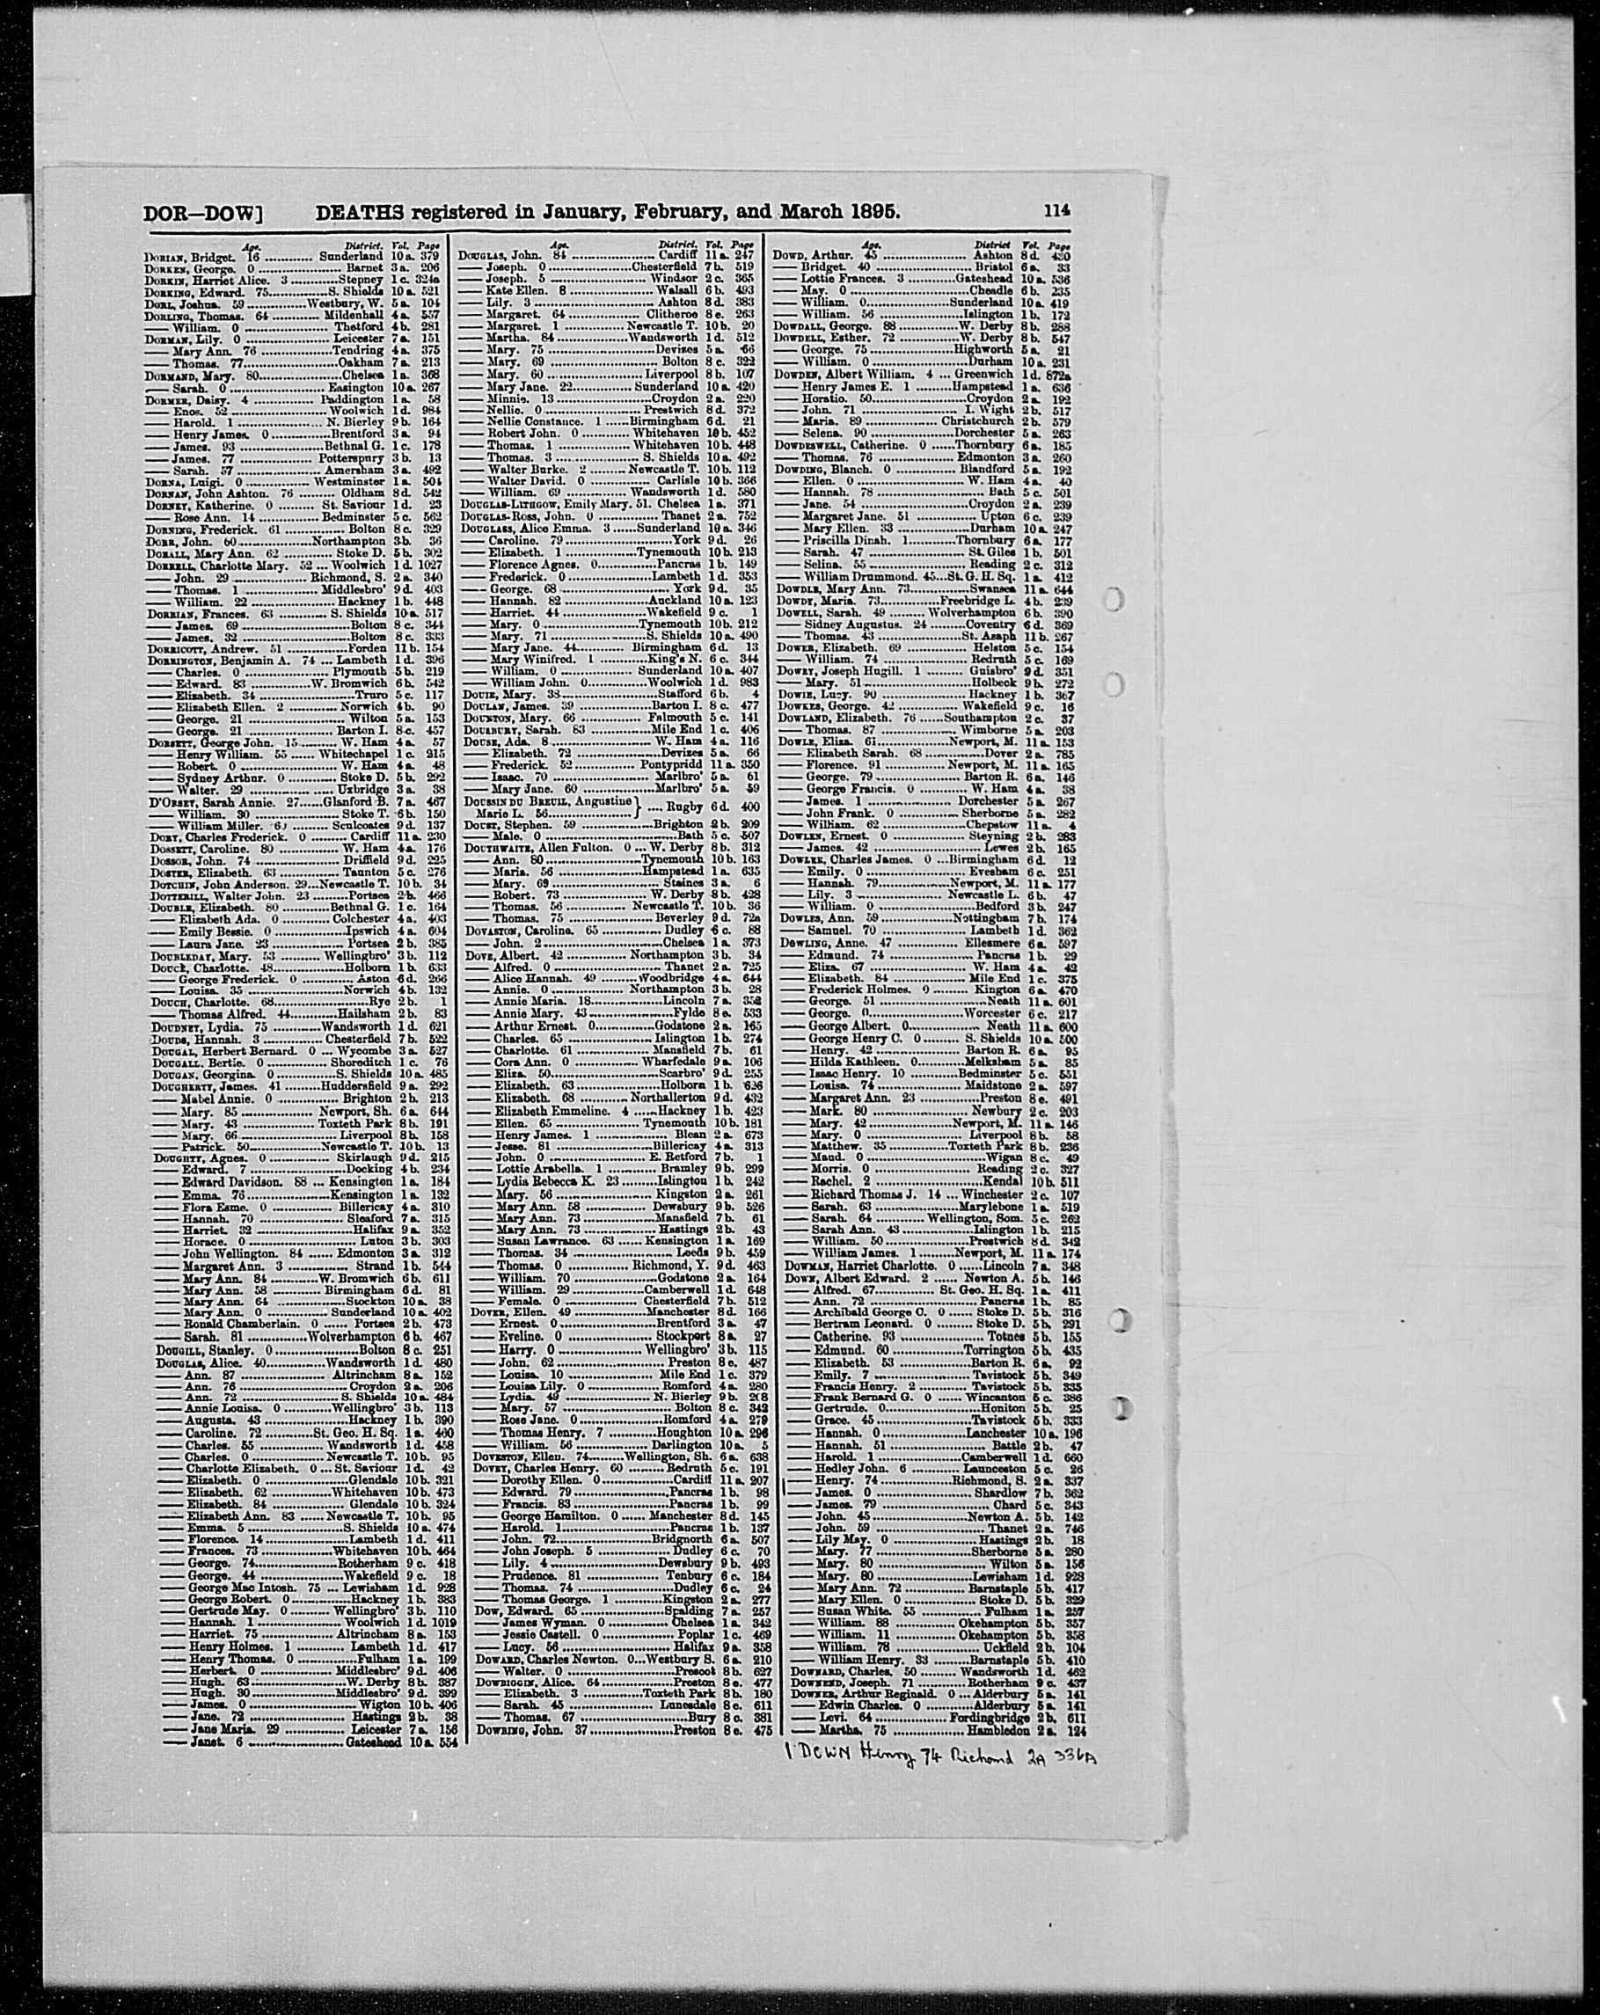 DOR—DOW] DEATHS registered in January, February, and March 1895. 114
Age. District. Vol. Page
DORIAN, Bridget. 16 ... Sunderland 10 a. 379
DORKEN, George. 0 ... Barnet 3 a. 206
DORKIN, Harriet Alice. 3 ... Stepney 1 c. 324a
DORKING, Edward. 75 ... S. Shields 10 a. 521
DORL, Joshua. 59 ... Westbury, W. 5 a. 104
DORLING, Thomas. 64 ... Mildenhall 4 a. 557
— William. 0 ... Thetford 4 b. 281
DORMAN, Lily. 0 ... Leicester 7 a. 151
— Mary Ann. 76 ... Tendring 4 a. 375
— Thomas. 77 ... Oakham 7 a. 213
DORMAND, Mary. 80 ... Chelsea 1 a. 368
— Sarah. 0 ... Easington 10 a. 267
DORMER, Daisy. 4 ... Paddington 1 a. 58
— Enos. 52 ... Woolwich 1 d. 984
— Harold. 1 ... N. Bierley 9 b. 164
— Henry James. 0 ... Brentford 3 a. 94
— James. 93 ... Bethnal G. 1 c. 178
— James. 77 ... Potterspury 3 b. 13
— Sarah. 57 ... Amersham 3 a. 492
DORNA, Luigi. 0 ... Westminster 1 a. 504
DORNAN, John Ashton. 76 ... Oldham 8 d. 542
DORNEY, Katherine. 0 ... St. Saviour 1 d. 23
— Rose Ann. 14 ... Bedminster 5 c. 562
DORNING, Frederick. 61 ... Bolton 8 c. 329
DORR, John. 60 ... Northampton 3 b. 36
DORRALL, Mary Ann. 62 ... Stoke D. 5 b. 302
DORRELL, Charlotte Mary. 52 ... Woolwich 1 d. 1027
— John. 29 ... Richmond, S. 2 a. 340
— Thomas. 1 ... Middlesbro' 9 d. 403
— William. 22 ... Hackney 1 b. 448
DORRIAN, Frances. 63 ... S. Shields 10 a. 517
— James. 69 ... Bolton 8 c. 344
— James. 32 ... Bolton 8 c. 333
DORRICOTT, Andrew. 51 ... Forden 11 b. 154
DORRINGTON, Benjamin A. 74 ... Lambeth 1 d. 396
— Charles. 0 ... Plymouth 5 b. 219
— Edward. 83 ... W. Bromwich 6 b. 542
— Elizabeth. 34 ... Truro 5 c. 117
— Elizabeth Ellen. 2 ... Norwich 4 b. 90
— George. 21 ... Wilton 5 a. 153
— George. 21 ... Barton I. 8 c. 457
DORSETT, George John. 15 ... W. Ham 4 a. 57
— Henry William. 55 ... Whitechapel 1 c. 215
— Robert. 0 ... W. Ham 4 a. 48
— Sydney Arthur. 0 ... Stoke D. 5 b. 292
— Walter. 29 ... Uxbridge 3 a. 38
D'ORSEY, Sarah Annie. 27 ... Glanford B. 7 a. 467
— William. 30 ... Stoke T. 6 b. 150
— William Miller. ... Sculcoates 9 d. 137
DORY, Charles Frederick. 0 ... Cardiff 11 a. 230
DOSSETT, Caroline. 80 ... W. Ham 4 a. 176
DOSSOR, John. 74 ... Driffield 9 d. 225
DOSTER, Elizabeth. 63 ... Taunton 5 c. 276
DOTCHIN, John Anderson. 29 ... Newcastle T. 10 b. 34
DOTTERILL, Walter John. 23 ... Portsea 2 b. 466
DOUBLE, Elizabeth. 80 ... Bethnal G. 1 c. 164
— Elizabeth Ada. 0 ... Colchester 4 a. 403
— Emily Bessie. 0 ... Ipswich 4 a. 604
— Laura Jane. 23 ... Portsea 2 b. 385
DOUBLEDAY, Mary. 53 ... Wellingbro' 3 b. 112
DOUCE, Charlotte. 48 ... Holborn 1 b. 633
— George Frederick. 0 ... Aston 6 d. 266
— Louisa. 35 ... Norwich 4 b. 132
DOUCH, Charlotte. 68 ... Rye 2 b. 1
— Thomas Alfred. 44 ... Hailsham 2 b. 83
DOUDNEY, Lydia. 75 ... Wandsworth 1 d. 621
DOUDS, Hannah. 3 ... Chesterfield 7 b. 522
DOUGAL, Herbert Bernard. 0 ... Wycombe 3 a. 527
DOUGALL, Bertie. 0 ... Shoreditch 1 c. 76
DOUGAN, Georgina. 0 ... S. Shields 10 a. 485
DOUGHERTY, James. 41 ... Huddersfield 9 a. 292
— Mabel Annie. 0 ... Brighton 2 b. 213
— Mary. 85 ... Newport, Sh. 6 a. 644
— Mary. 43 ... Toxteth Park 8 b. 191
— Mary. 66 ... Liverpool 8 b. 158
— Patrick. 50 ... Newcastle T. 10 b. 13
DOUGHTY, Agnes. 0 ... Skirlaugh 9 d. 215
— Edward. 7 ... Docking 4 b. 234
— Edward Davidson. 88 ... Kensington 1 a. 184
— Emma. 76 ... Kensington 1 a. 132
— Flora Esme. 0 ... Billericay 4 a. 310
— Hannah. 70 ... Sleaford 7 a. 315
— Harriet. 32 ... Halifax 9 a. 352
— Horace. 0 ... Luton 3 b. 303
— John Wellington. 84 ... Edmonton 3 a. 312
— Margaret Ann. 3 ... Strand 1 b. 544
— Mary Ann. 84 ... W. Bromwich 6 b. 611
— Mary Ann. 58 ... Birmingham 6 d. 81
— Mary Ann. 64 ... Stockton 10 a. 38
— Mary Ann. 0 ... Sunderland 10 a. 402
— Ronald Chamberlain. 0 ... Portsea 2 b. 473
— Sarah. 81 ... Wolverhampton 6 b. 467
DOUGILL, Stanley. 0 ... Bolton 8 c. 251
DOUGLAS, Alice. 40 ... Wandsworth 1 d. 480
— Ann. 87 ... Altrincham 8 a. 152
— Ann. 76 ... Croydon 2 a. 206
— Ann. 72 ... S. Shields 10 a. 484
— Annie Louisa. 0 ... Wellingbro' 3 b. 113
— Augusta. 43 ... Hackney 1 b. 390
— Caroline. 72 ... St. Geo. H. Sq. 1 a. 400
— Charles. 55 ... Wandsworth 1 d. 458
— Charles. 0 ... Newcastle T. 10 b. 95
— Charlotte Elizabeth. 0 ... St. Saviour 1 d. 42
— Elizabeth. 0 ... Glendale 10 b. 321
— Elizabeth. 62 ... Whitehaven 10 b. 473
— Elizabeth. 84 ... Glendale 10 b. 324
— Elizabeth Ann. 83 ... Newcastle T. 10 b. 95
— Emma. 5 ... S. Shields 10 a. 474
— Florence. 14 ... Lambeth 1 d. 411
— Frances. 73 ... Whitehaven 10 b. 464
— George. 74 ... Rotherham 9 c. 418
— George. 44 ... Wakefield 9 c. 18
— George Mac Intosh. 75 ... Lewisham 1 d. 928
— George Robert. 0 ... Hackney 1 b. 383
— Gertrude May. 0 ... Wellingbro' 3 b. 110
— Hannah. 1 ... Woolwich 1 d. 1019
— Harriet. 75 ... Altrincham 8 a. 153
— Henry Holmes. 1 ... Lambeth 1 d. 417
— Henry Thomas. 0 ... Fulham 1 a. 199
— Herbert. 0 ... Middlesbro' 9 d. 406
— Hugh. 63 ... W. Derby 8 b. 387
— Hugh. 30 ... Middlesbro' 9 d. 399
— James. 0 ... Wigton 10 b. 406
— Jane. 72 ... Hastings 2 b. 38
— Jane Maria. 29 ... Leicester 7 a. 156
— Janet. 6 ... Gateshead 10 a. 554
Age. District. Vol. Page
DOUGLAS, John. 84 ... Cardiff 11 a. 247
— Joseph. 0 ... Chesterfield 7 b. 519
— Joseph. 5 ... Windsor 2 c. 365
— Kate Ellen. 8 ... Walsall 6 b. 493
— Lily. 3 ... Ashton 8 d. 383
— Margaret. 64 ... Clitheroe 8 e. 263
— Margaret. 1 ... Newcastle T. 10 b. 20
— Martha. 84 ... Wandsworth 1 d. 512
— Mary. 75 ... Devizes 5 a. 66
— Mary. 69 ... Bolton 8 c. 322
— Mary. 60 ... Liverpool 8 b. 107
— Mary Jane. 22 ... Sunderland 10 a. 420
— Minnie. 13 ... Croydon 2 a. 220
— Nellie. 0 ... Prestwich 8 d. 372
— Nellie Constance. 1 ... Birmingham 6 d. 21
— Robert John. 0 ... Whitehaven 10 b. 452
— Thomas. 1 ... Whitehaven 10 b. 448
— Thomas. 3 ... S. Shields 10 a. 492
— Walter Burke. 2 ... Newcastle T. 10 b. 112
— Walter David. 0 ... Carlisle 10 b. 366
— William. 69 ... Wandsworth 1 d. 580
DOUGLAS-LITHGOW, Emily Mary. 51. Chelsea 1 a. 371
DOUGLAS-ROSS, John. 0 ... Thanet 2 a. 752
DOUGLASS, Alice Emma. 3 ... Sunderland 10 a. 346
— Caroline. 79 ... York 9 d. 26
— Elizabeth. 1 ... Tynemouth 10 b. 213
— Florence Agnes. 0 ... Pancras 1 b. 149
— Frederick. 0 ... Lambeth 1 d. 353
— George. 68 ... York 9 d. 35
— Hannah. 82 ... Auckland 10 a. 123
— Harriet. 44 ... Wakefield 9 c. 1
— Mary. 0 ... Tynemouth 10 b. 212
— Mary. 71 ... S. Shields 10 a. 490
— Mary Jane. 44 ... Birmingham 6 d. 13
— Mary Winifred. 1 ... King's N. 6 c. 344
— William. 0 ... Sunderland 10 a. 407
— William John. 0 ... Woolwich 1 d. 983
DOUIE, Mary. 38 ... Stafford 6 b. 4
DOULAN, James. 39 ... Barton I. 8 c. 477
DOUNTON, Mary. 66 ... Falmouth 5 c. 141
DOURBURY, Sarah. 83 ... Mile End 1 c. 406
DOUSE, Ada. 8 ... W. Ham 4 a. 116
— Elizabeth. 72 ... Devizes 5 a. 66
— Frederick. 52 ... Pontypridd 11 a. 350
— Isaac. 70 ... Marlbro' 5 a. 61
— Mary Jane. 60 ... Marlbro' 5 a. 59
DOUSSIN DU BREUIL, Augustine Marie L. 56 } ... Rugby 6 d. 400
DOUST, Stephen. 59 ... Brighton 2 b. 209
— Male. 0 ... Bath 5 c. 507
DOUTHWAITE, Allen Fulton. 0 ... W. Derby 8 b. 312
— Ann. 80 ... Tynemouth 10 b. 163
— Maria. 56 ... Hampstead 1 a. 635
— Mary. 69 ... Staines 3 a. 6
— Robert. 73 ... W. Derby 8 b. 428
— Thomas. 56 ... Newcastle T. 10 b. 36
— Thomas. 75 ... Beverley 9 d. 72a
DOVASTON, Caroline. 65 ... Dudley 6 c. 88
— John. 2 ... Chelsea 1 a. 373
DOVE, Albert. 42 ... Northampton 3 b. 34
— Alfred. 0 ... Thanet 2 a. 725
— Alice Hannah. 49 ... Woodbridge 4 a. 644
— Annie. 0 ... Northampton 3 b. 28
— Annie Maria. 18 ... Lincoln 7 a. 358
— Annie Mary. 43 ... Fylde 8 e. 533
— Arthur Ernest. 0 ... Godstone 2 a. 165
— Charles. 65 ... Islington 1 b. 274
— Charlotte. 61 ... Mansfield 7 b. 61
— Cora Ann. 0 ... Wharfedale 9 a. 106
— Eliza. 50 ... Scarbro' 9 d. 255
— Elizabeth. 63 ... Holborn 1 b. 626
— Elizabeth. 68 ... Northallerton 9 d. 432
— Elizabeth Emmeline. 4 ... Hackney 1 b. 423
— Ellen. 65 ... Tynemouth 10 b. 181
— Henry James. 1 ... Blean 2 a. 673
— Jesse. 81 ... Billericay 4 a. 313
— John. 0 ... E. Retford 7 b. 1
— Lottie Arabella. 1 ... Bramley 9 b. 299
— Lydia Rebecca K. 23 ... Islington 1 b. 242
— Mary. 56 ... Kingston 2 a. 261
— Mary Ann. 58 ... Dewsbury 9 b. 526
— Mary Ann. 73 ... Mansfield 7 b. 61
— Mary Ann. 73 ... Hastings 2 b. 43
— Susan Lawrance. 63 ... Kensington 1 a. 169
— Thomas. 34 ... Leeds 9 b. 459
— Thomas. 0 ... Richmond, Y. 9 d. 463
— William. 70 ... Godstone 2 a. 164
— William. 29 ... Camberwell 1 d. 648
— Female. 0 ... Chesterfield 7 b. 512
DOVER, Ellen. 49 ... Manchester 8 d. 166
— Ernest. 0 ... Brentford 3 a. 47
— Eveline. 0 ... Stockport 8 a. 27
— Harry. 0 ... Wellingbro' 3 b. 115
— John. 62 ... Preston 8 e. 487
— Louisa. 10 ... Mile End 1 c. 379
— Louisa Lily. 0 ... Romford 4 a. 280
— Lydia. 49 ... N. Bierley 9 b. 208
— Mary. 57 ... Bolton 8 c. 342
— Rose Jane. 0 ... Romford 4 a. 279
— Thomas Henry. 7 ... Houghton 10 a. 296
— William. 56 ... Darlington 10 a. 5
DOVESTON, Ellen. 74 ... Wellington, Sh. 6 a. 638
DOVEY, Charles Henry. 60 ... Redruth 5 c. 191
— Dorothy Ellen. 0 ... Cardiff 11 a. 207
— Edward. 79 ... Pancras 1 b. 98
— Francis. 83 ... Pancras 1 b. 99
— George Hamilton. 0 ... Manchester 8 d. 145
— Harold. 1 ... Pancras 1 b. 137
— John. 72 ... Bridgnorth 6 a. 507
— John Joseph. 5 ... Dudley 6 c. 70
— Lily. 4 ... Dewsbury 9 b. 493
— Prudence. 81 ... Tenbury 6 c. 184
— Thomas. 74 ... Dudley 6 c. 24
— Thomas George. 1 ... Kingston 2 a. 277
DOW, Edward. 65 ... Spalding 7 a. 257
— James Wyman. 0 ... Chelsea 1 a. 342
— Jessie Castell. 0 ... Poplar 1 c. 469
— Lucy. 56 ... Halifax 9 a. 358
DOWARD, Charles Newton. 0 ... Westbury S. 6 a. 210
— Walter. 0 ... Prescot 8 b. 627
DOWBIGGIN, Alice. 64 ... Preston 8 e. 477
— Elizabeth. 3 ... Toxteth Park 8 b. 180
— Sarah. 45 ... Lunesdale 8 e. 611
— Thomas. 67 ... Bury 8 c. 381
DOWBING, John. 37 ... Preston 8 e. 475
Age. District Vol. Page
DOWD, Arthur. 45 ... Ashton 8 d. 420
— Bridget. 40 ... Bristol 6 a. 33
— Lottie Frances. 3 ... Gateshead 10 a. 536
— May. 0 ... Cheadle 6 b. 235
— William. 0 ... Sunderland 10 a. 419
— William. 56 ... Islington 1 b. 172
DOWDALL, George. 88 ... W. Derby 8 b. 288
DOWDELL, Esther. 72 ... W. Derby 8 b. 547
— George. 75 ... Highworth 5 a. 21
— William. 0 ... Durham 10 a. 231
DOWDEN, Albert William. 4 ... Greenwich 1 d. 872a
— Henry James E. 1 ... Hampstead 1 a. 636
— Horatio. 50 ... Croydon 2 a. 192
— John. 71 ... I. Wight 2 b. 517
— Maria. 89 ... Christchurch 2 b. 579
— Selena. 90 ... Dorchester 5 a. 263
DOWDESWELL, Catherine. 0 ... Thornbury 6 a. 185
— Thomas. 76 ... Edmonton 3 a. 260
DOWDING, Blanch. 0 ... Blandford 5 a. 192
— Ellen. 0 ... W. Ham 4 a. 40
— Hannah. 78 ... Bath 5 c. 501
— Jane. 54 ... Croydon 2 a. 239
— Margaret Jane. 51 ... Upton 6 c. 239
— Mary Ellen. 33 ... Durham 10 a. 247
— Priscilla Dinah. 1 ... Thornbury 6 a. 177
— Sarah. 47 ... St. Giles 1 b. 501
— Selina. 55 ... Reading 2 c. 312
— William Drummond. 45 ... St. G. H. Sq. 1 a. 412
DOWDLE, Mary Ann. 73 ... Swansea 11 a. 644
DOWDY, Maria. 73 ... Freebridge L. 4 b. 239
DOWELL, Sarah. 49 ... Wolverhampton 6 b. 390
— Sidney Augustus. 24 ... Coventry 6 d. 369
— Thomas. 43 ... St. Asaph 11 b. 267
DOWER, Elizabeth. 69 ... Helston 5 c. 154
— William. 74 ... Redruth 5 c. 169
DOWEY, Joseph Hugill. 1 ... Guisbro' 9 d. 351
— Mary. 51 ... Holbeck 9 b. 272
DOWIE, Lucy. 90 ... Hackney 1 b. 367
DOWKES, George. 42 ... Wakefield 9 c. 16
DOWLAND, Elizabeth. 76 ... Southampton 2 c. 37
— Thomas. 87 ... Wimborne 5 a. 203
DOWLE, Eliza. 61 ... Newport, M. 11 a. 153
— Elizabeth Sarah. 68 ... Dover 2 a. 785
— Florence. 91 ... Newport, M. 11 a. 165
— George. 79 ... Barton R. 6 a. 146
— George Francis. 0 ... W. Ham 4 a. 38
— James. 1 ... Dorchester 5 a. 267
— John Frank. 0 ... Sherborne 5 a. 282
— William. 62 ... Chepstow 11 a. 4
DOWLEN, Ernest. 0 ... Steyning 2 b. 283
— James. 42 ... Lewes 2 b. 165
DOWLER, Charles James. 0 ... Birmingham 6 d. 12
— Emily. 0 ... Evesham 6 c. 251
— Hannah. 79 ... Newport, M. 11 a. 177
— Lily. 3 ... Newcastle L. 6 b. 47
— William. 0 ... Bedford 3 b. 247
DOWLES, Ann. 59 ... Nottingham 7 b. 174
— Samuel. 70 ... Lambeth 1 d. 362
DOWLING, Anne. 47 ... Ellesmere 6 a. 597
— Edmund. 74 ... Pancras 1 b. 29
— Eliza. 67 ... W. Ham 4 a. 42
— Elizabeth. 84 ... Mile End 1 c. 375
— Frederick Holmes. 0 ... Kington 6 a. 470
— George. 51 ... Neath 11 a. 601
— George. 0 ... Worcester 6 c. 217
— George Albert. 0 ... Neath 11 a. 600
— George Henry C. 0 ... S. Shields 10 a. 500
— Henry. 42 ... Barton R. 6 a. 95
— Hilda Kathleen. 0 ... Melksham 5 a. 85
— Isaac Henry. 10 ... Bedminster 5 c. 551
— Louisa. 74 ... Maidstone 2 a. 597
— Margaret Ann. 23 ... Preston 8 e. 491
— Mark. 80 ... Newbury 2 c. 203
— Mary. 42 ... Newport, M. 11 a. 146
— Mary. 0 ... Liverpool 8 b. 58
— Matthew. 35 ... Toxteth Park 8 b. 236
— Maud. 0 ... Wigan 8 c. 49
— Morris. 0 ... Reading 2 c. 327
— Rachel. 2 ... Kendal 10 b. 511
— Richard Thomas J. 14 ... Winchester 2 c. 107
— Sarah. 63 ... Marylebone 1 a. 519
— Sarah. 64 ... Wellington, Som. 5 c. 262
— Sarah Ann. 43 ... Islington 1 b. 215
— William. 50 ... Prestwich 8 d. 342
— William James. 1 ... Newport, M. 11 a. 174
DOWMAN, Harriet Charlotte. 0 ... Lincoln 7 a. 348
DOWN, Albert Edward. 2 ... Newton A. 5 b. 146
— Alfred. 67 ... St. Geo. H. Sq. 1 a. 411
— Ann. 72 ... Pancras 1 b. 85
— Archibald George C. 0 ... Stoke D. 5 b. 316
— Bertram Leonard. 0 ... Stoke D. 5 b. 291
— Catherine. 93 ... Totnes 5 b. 155
— Edmund. 60 ... Torrington 5 b. 435
— Elizabeth. 53 ... Barton R. 6 a. 92
— Emily. 7 ... Tavistock 5 b. 349
— Francis Henry. 2 ... Tavistock 5 b. 335
— Frank Bernard G. 0 ... Wincanton 5 c. 386
— Gertrude. 0 ... Honiton 5 b. 25
— Grace. 45 ... Tavistock 5 b. 333
— Hannah. 0 ... Lanchester 10 a. 196
— Hannah. 51 ... Battle 2 b. 47
— Harold. 1 ... Camberwell 1 d. 660
— Hedley John. 6 ... Launceston 5 c. 26
— Henry. 74 ... Richmond, S. 2 a. 337
— James. 0 ... Shardlow 7 b. 362
— James. 79 ... Chard 5 c. 343
— John. 45 ... Newton A. 5 b. 142
— John. 59 ... Thanet 2 a. 746
— Lily May. 0 ... Hastings 2 b. 18
— Mary. 77 ... Sherborne 5 a. 280
— Mary. 80 ... Wilton 5 a. 156
— Mary. 80 ... Lewisham 1 d. 928
— Mary Ann. 72 ... Barnstaple 5 b. 417
— Mary Ellen. 0 ... Stoke D. 5 b. 329
— Susan White. 55 ... Fulham 1 a. 257
— William. 88 ... Okehampton 5 b. 357
— William. 11 ... Okehampton 5 b. 358
— William. 78 ... Uckfield 2 b. 104
— William Henry. 33 ... Barnstaple 5 b. 410
DOWNARD, Charles. 50 ... Wandsworth 1 d. 462
DOWNEND, Joseph. 71 ... Rotherham 9 c. 437
DOWNER, Arthur Reginald. 0 ... Alderbury 5 a. 141
— Edwin Charles. 0 ... Alderbury 5 a. 141
— Levi. 64 ... Fordingbridge 2 b. 611
— Martha. 75 ... Hambledon 2 a. 124
DOWN Henry 74 Richmond 2A 336A